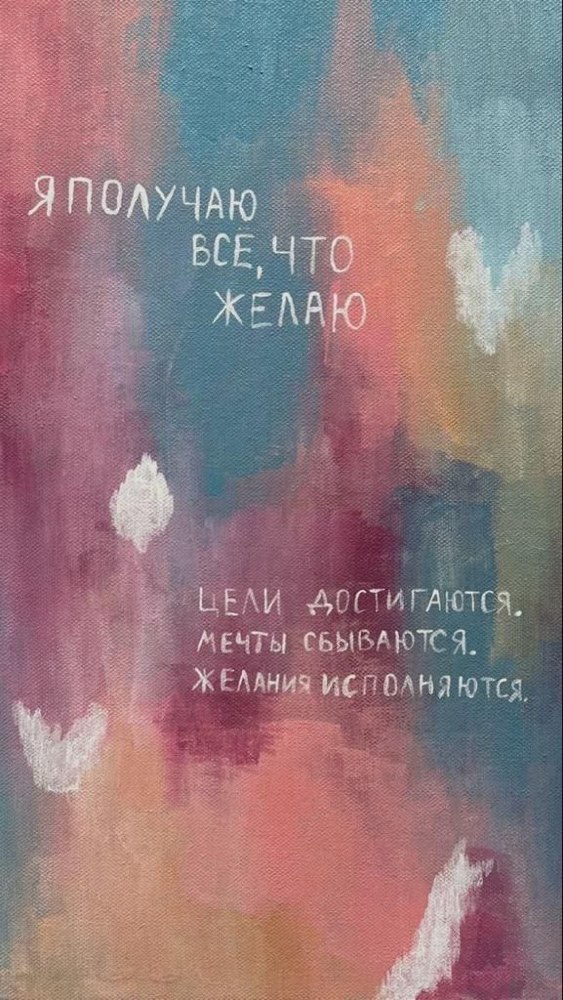 Я ПОЛУЧАЮ
ВСЕ, ЧТО
ЖЕЛАЮ
ЦЕЛИ ДОСТИГАЮТСЯ.
МЕЧТЫ СБЫВАЮТСЯ.
ЖЕЛАНИЯ ИСПОЛНЯЮТСЯ.